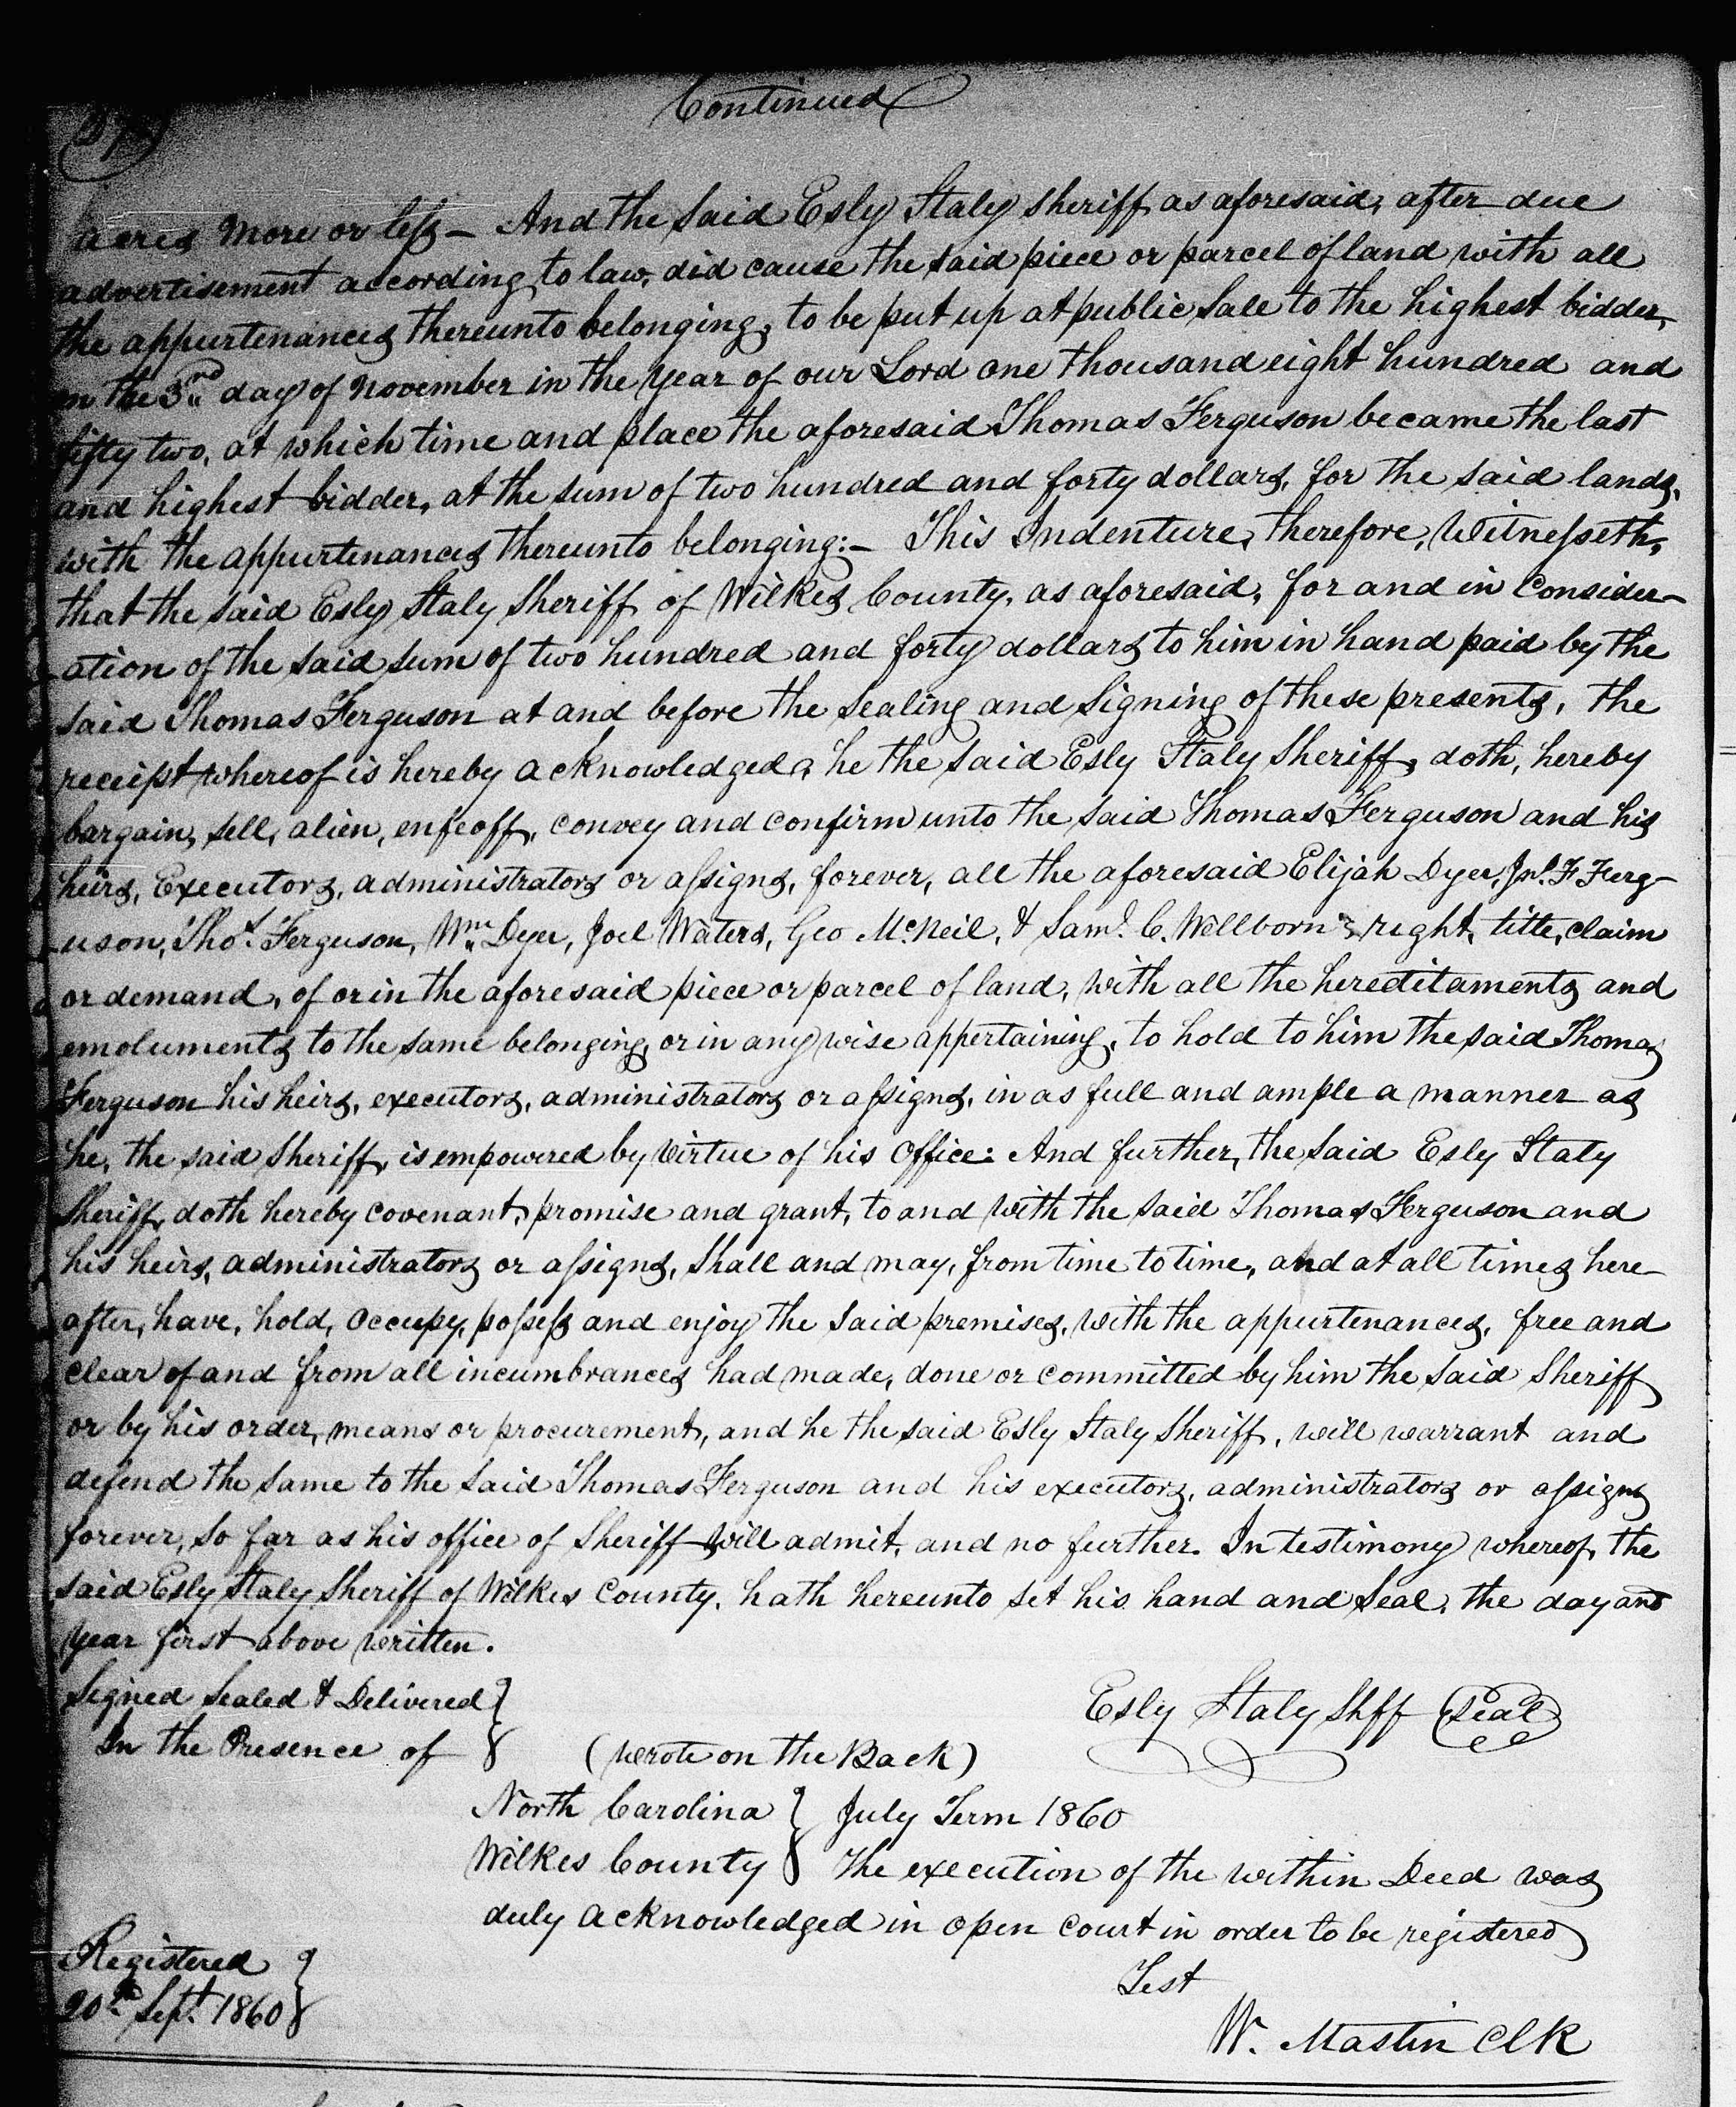 Continued
acres more or less – And the said Esly Staly sheriff as aforesaid, after due
advertisement according to law, did cause the said piece or parcel of land with all
the appurtenances thereunto belonging, to be put up at public sale to the highest bidder,
on the 3rd day of November in the year of our Lord one thousand eight hundred and
fifty two, at which time and place the aforesaid Thomas Ferguson became the last
and highest bidder, at the sum of two hundred and forty dollars, for the said lands,
with the appurtenances thereunto belonging:– This Indenture, therefore, Witnesseth,
that the said Esly Staly Sheriff of Wilkes County, as aforesaid, for and in consider-
ation of the said sum of two hundred and forty dollars to him in hand paid by the
said Thomas Ferguson at and before the sealing and signing of these presents, the
receipt whereof is hereby acknowledged, he the said Esly Staly Sheriff, doth, hereby
bargain, sell, alien, enfeoff, convey and confirm unto the said Thomas Ferguson and his
heirs, Executors, administrators or assigns, forever, all the aforesaid Elijah Dyer, Jno. F Ferg-
uson, Thos. Ferguson, Wm Dyer, Joel Waters, Geo McNeil, & Saml. C. Wellborn's right, title, claim
or demand, of or in the aforesaid piece or parcel of land, with all the hereditaments and
emoluments to the same belonging, or in any wise appertaining, to hold to him the said Thomas
Ferguson his heirs, executors, administrators or assigns, in as full and ample a manner as
he, the said Sheriff, is empowered by virtue of his office: And further, the said Esly Staly
Sheriff, doth hereby covenant, promise and grant, to and with the said Thomas Ferguson and
his heirs, administrators or assigns, shall and may, from time to time, and at all times here-
after, have, hold, occupy, possess and enjoy the said premises, with the appurtenances, free and
clear of and from all incumbrances had made, done or committed by him the said Sheriff
or by his order, means or procurement, and he the said Esly Staly Sheriff, will warrant and
defend the same to the said Thomas Ferguson and his executors, administrators or assigns
forever, so far as his office of Sheriff will admit, and no further. In testimony whereof, the
said Esly Staly Sheriff of Wilkes County, hath hereunto set his hand and seal, the day and
year first above written.
Signed Sealed & Delivered
In the Presence of
Esly Staly Shff (Seal)
(wrote on the Back)
North Carolina } July Term 1860
Wilkes County } The execution of the within Deed was
duly acknowledged in open court in order to be registered
Test
W. Mastin Clk
Registered
20th Sept. 1860